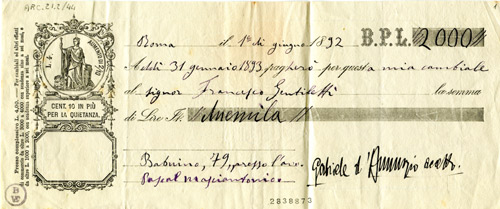 ARC. 21.2/44
L. 4.
CENT. 10 IN PIÙ
PER LA QUIETANZA.
Roma il 1° di giugno 1892 B.P.L. 2000
A dì 31 gennaio 1893 pagherò per questa mia cambiale
al signor Francesco Gentiletti la somma
di Lire It. Duemila
Babuino, 79, presso l'avv.
Pasqal Masciantonio
Gabriele d'Annunzio
2838873